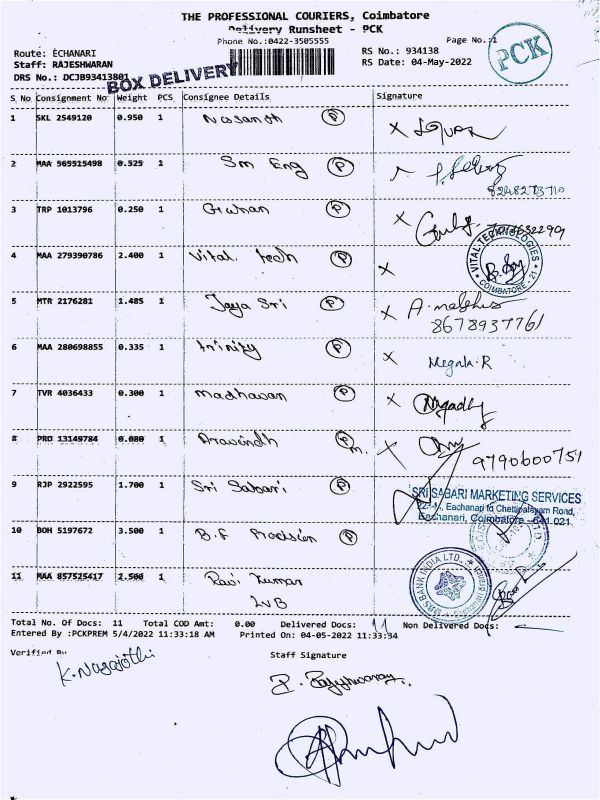 THE PROFESSIONAL COURIERS, Coimbatore
Delivery Runsheet - PCK
Phone No.:0422-3505555
Page No.:1
PCK
Route: ECHANARI
Staff: RAJESHWARAN
DRS No.: DCJB93413801
BOX DELIVERY
RS No.: 934138
RS Date: 04-May-2022
S No Consignment No Weight PCS Consignee Details Signature
1 SKL 2549120 0.950 1 P X
2 MAA 565515498 0.525 1 Sm Eng P
8248273710
3 TRP 1013796 0.250 1 Gunan P X
4 MAA 279390786 2.400 1 Vital tech P X
VITAL TECHNOLOGIES
COIMBATORE - 21
5 MTR 2176281 1.485 1 Jaya Sri P X
8678937761
6 MAA 280698855 0.335 1 trinity P X Megala.R
7 TVR 4036433 0.300 1 madhavan P X
8 PRO 13149784 0.080 1 Aravindh P m. X
9790600751
9 RJP 2922595 1.700 1 Sri Sabari P
SRI SABARI MARKETING SERVICES
Eachanari to Chettipalayam Road,
Eachanari, Coimbatore - 641 021
10 BOH 5197672 3.500 1 P
11 MAA 857525417 2.500 1 Ravi Kumar
LVB
DBS BANK INDIA LTD.
Total No. Of Docs: 11 Total COD Amt: 0.00 Delivered Docs: 11 Non Delivered Docs: -
Entered By :PCKPREM 5/4/2022 11:33:18 AM Printed On: 04-05-2022 11:33:34
Verified By Staff Signature
K. Nagajothi